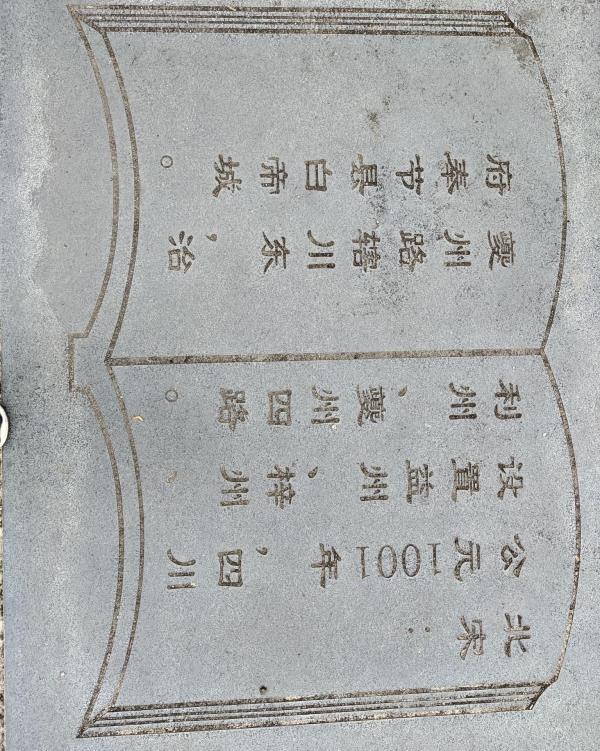 北宋：
公元1001年，四川
设置益州、梓州、
利州、夔州四路。
夔州路辖川东，治
府奉节县白帝城。